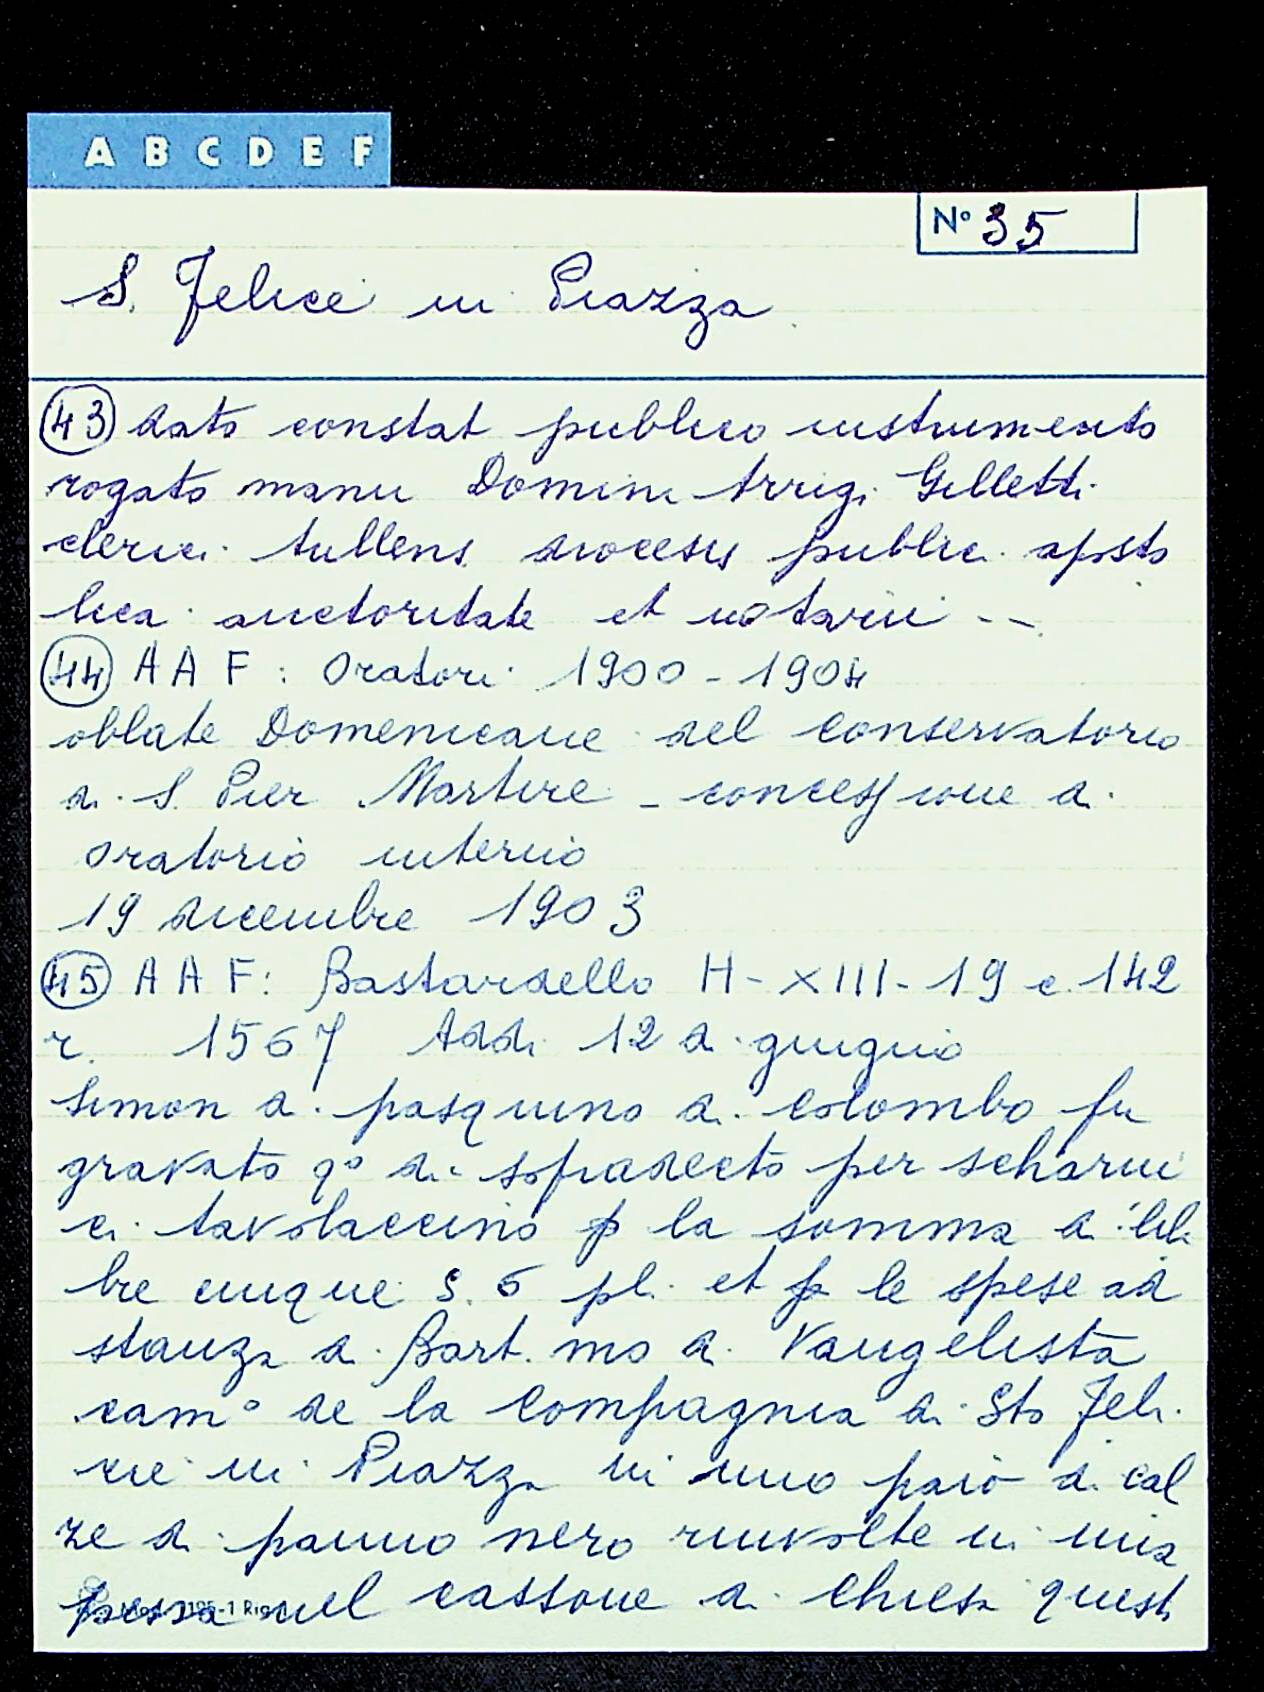 A B C D E F
N° 35
S. Felice in Piazza
43 dato constat publico instrumento
rogato manu Domini Arrigi Gilletti
clerici tullens diocesis public aposto
lica auctoritate et notarii --
44 A A F : Oratori 1900 - 1904
oblate Domenicane del Conservatorio
di S. Pier Martire - concessione di
oratorio interno
19 dicembre 1903
45 A A F : Bastardello H - XIII - 19 c. 142
r. 1567 Addi 12 di giugno
Simon di pasquino di Colombo fu
gravato q° di sopradecto per
ci tavolaccino p la somma di lili
bre cinque s. 6 pl. et p le spese ad
stanza di Bart.mo di Vangelista
cam° de la Compagnia di Sto Feli
cie in Piazza in uno paio di cal
ze di panno nero rinvolte in una
nel cassone di Chiesa questi